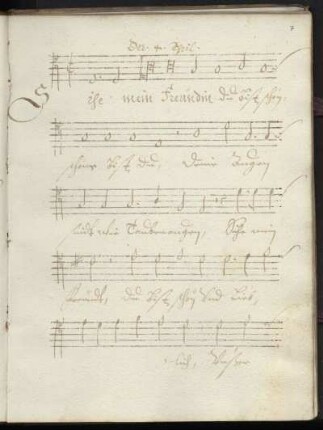 Siehe mein Freundin du bist schön,
schöne bist du, Deine Augen
sind wie Taubenaugen, Siehe mein
freundt, du bist schön und lieb,
lich, Unser